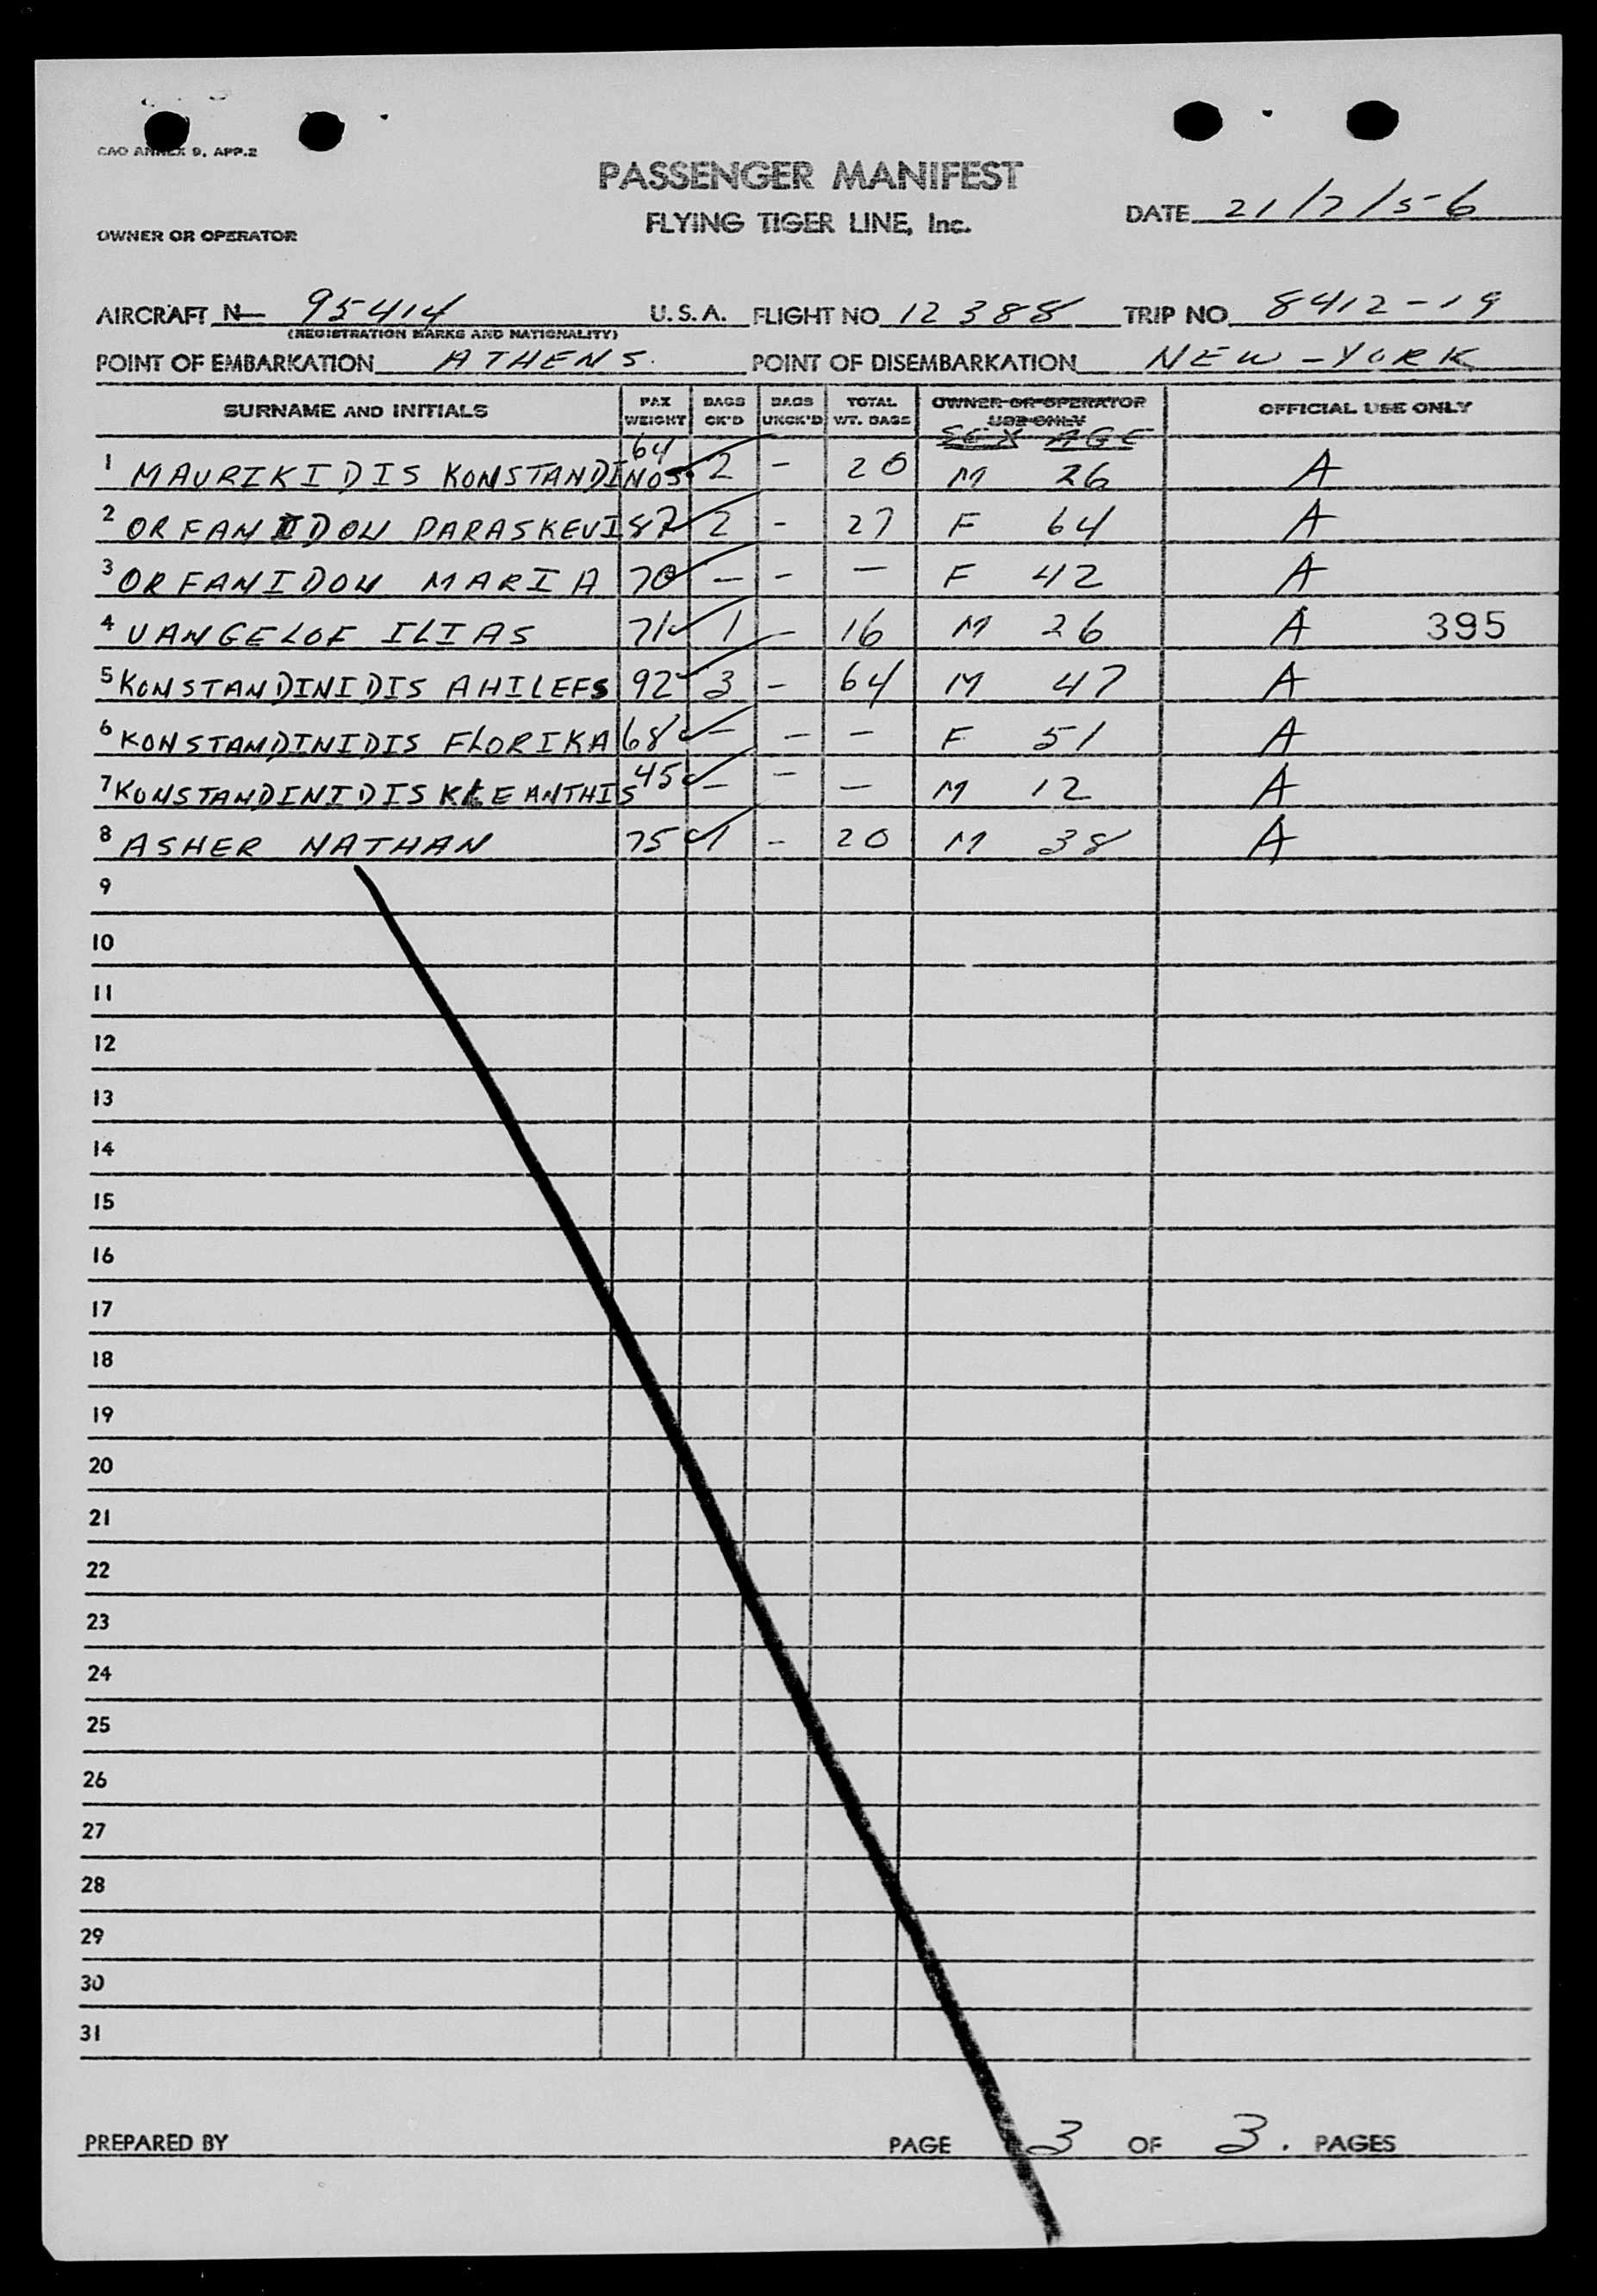 CAO ANNEX 9, APP.2
PASSENGER MANIFEST
FLYING TIGER LINE, Inc.
DATE 21/7/56
OWNER OR OPERATOR
AIRCRAFT N— 95414 U.S.A. FLIGHT NO 12388 TRIP NO 8412-19
(REGISTRATION MARKS AND NATIONALITY)
POINT OF EMBARKATION ATHENS. POINT OF DISEMBARKATION NEW-YORK
SURNAME AND INITIALS PAX WEIGHT BAGS CK'D BAGS UNCK'D TOTAL WT. BAGS OWNER OR OPERATOR USE ONLY SEX AGE OFFICIAL USE ONLY
1 MAVRIKIDIS KONSTANDINOS 64 2 - 20 M 26 A
2 ORFANIDOU PARASKEVI 87 2 - 27 F 64 A
3 ORFANIDOU MARIA 70 - - - F 42 A
4 VANGELOF ILIAS 71 1 - 16 M 26 A 395
5 KONSTANDINIDIS AHILEFS 92 3 - 64 M 47 A
6 KONSTANDINIDIS FLORIKA 68 - - - F 51 A
7 KONSTANDINIDIS KLEANTHIS 45 - - - M 12 A
8 ASHER NATHAN 75 1 - 20 M 38 A
9
10
11
12
13
14
15
16
17
18
19
20
21
22
23
24
25
26
27
28
29
30
31
PREPARED BY PAGE 3 OF 3. PAGES